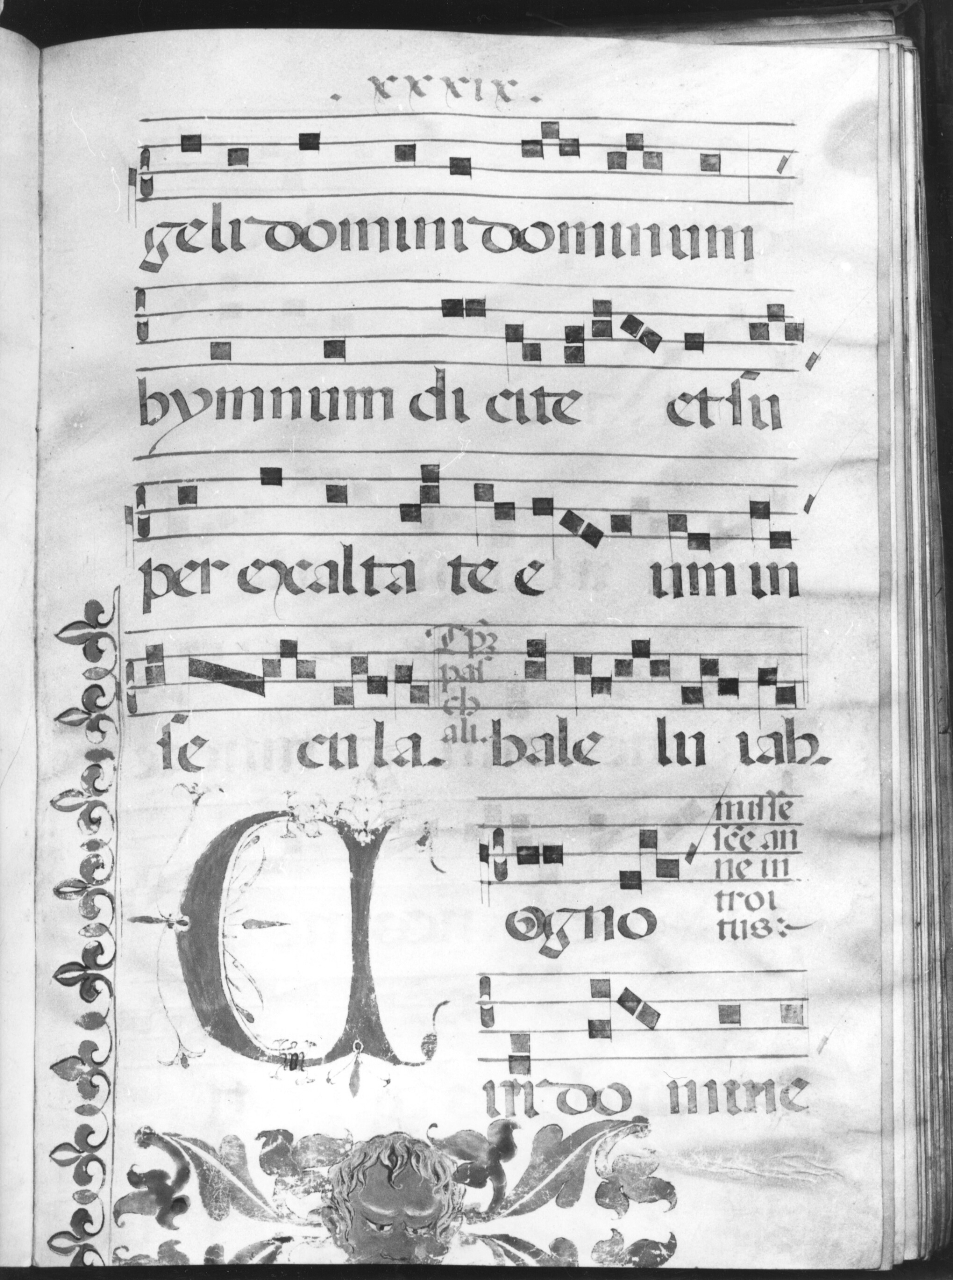 . xxxix .
geli domini dominum
hymnum di cite et su
per exalta te e um in
se cu la. bale lu iah.
Tp̄ꝫ
pas
ch
all.
C
ogno
ui do mine
misse
sc̄e an
ne in
troi
tus: